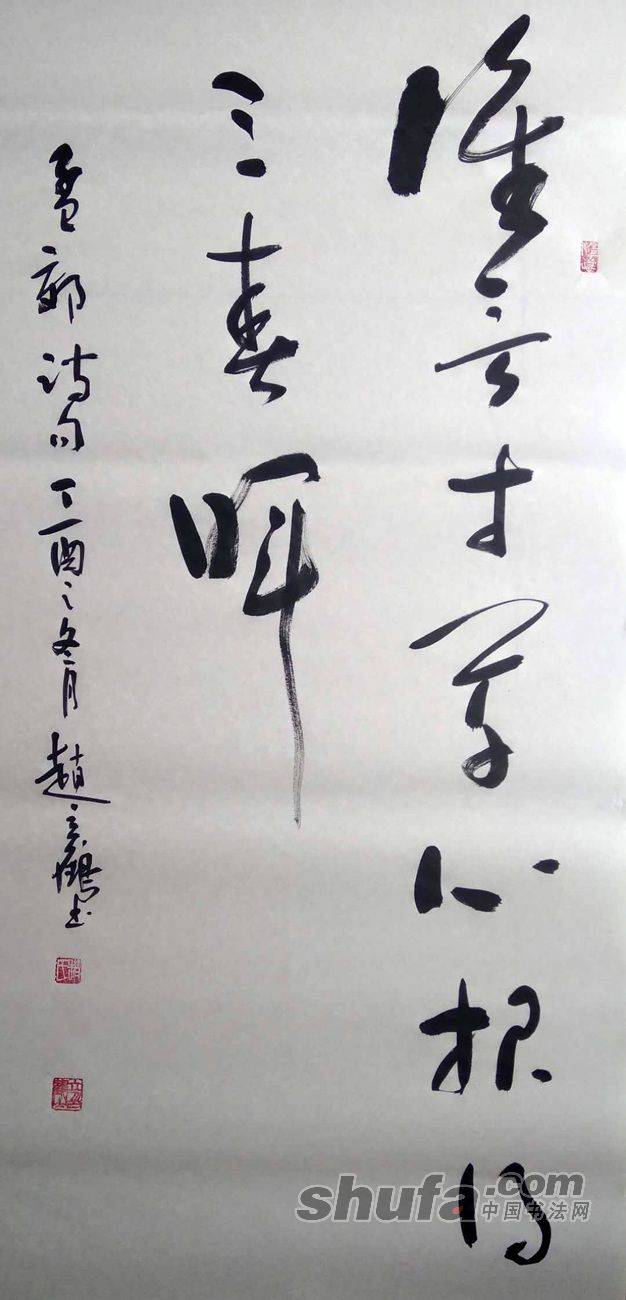 谁言寸草心报得
三春晖
孟郊诗句丁酉之冬月趙书
shufa.com
中国书法网